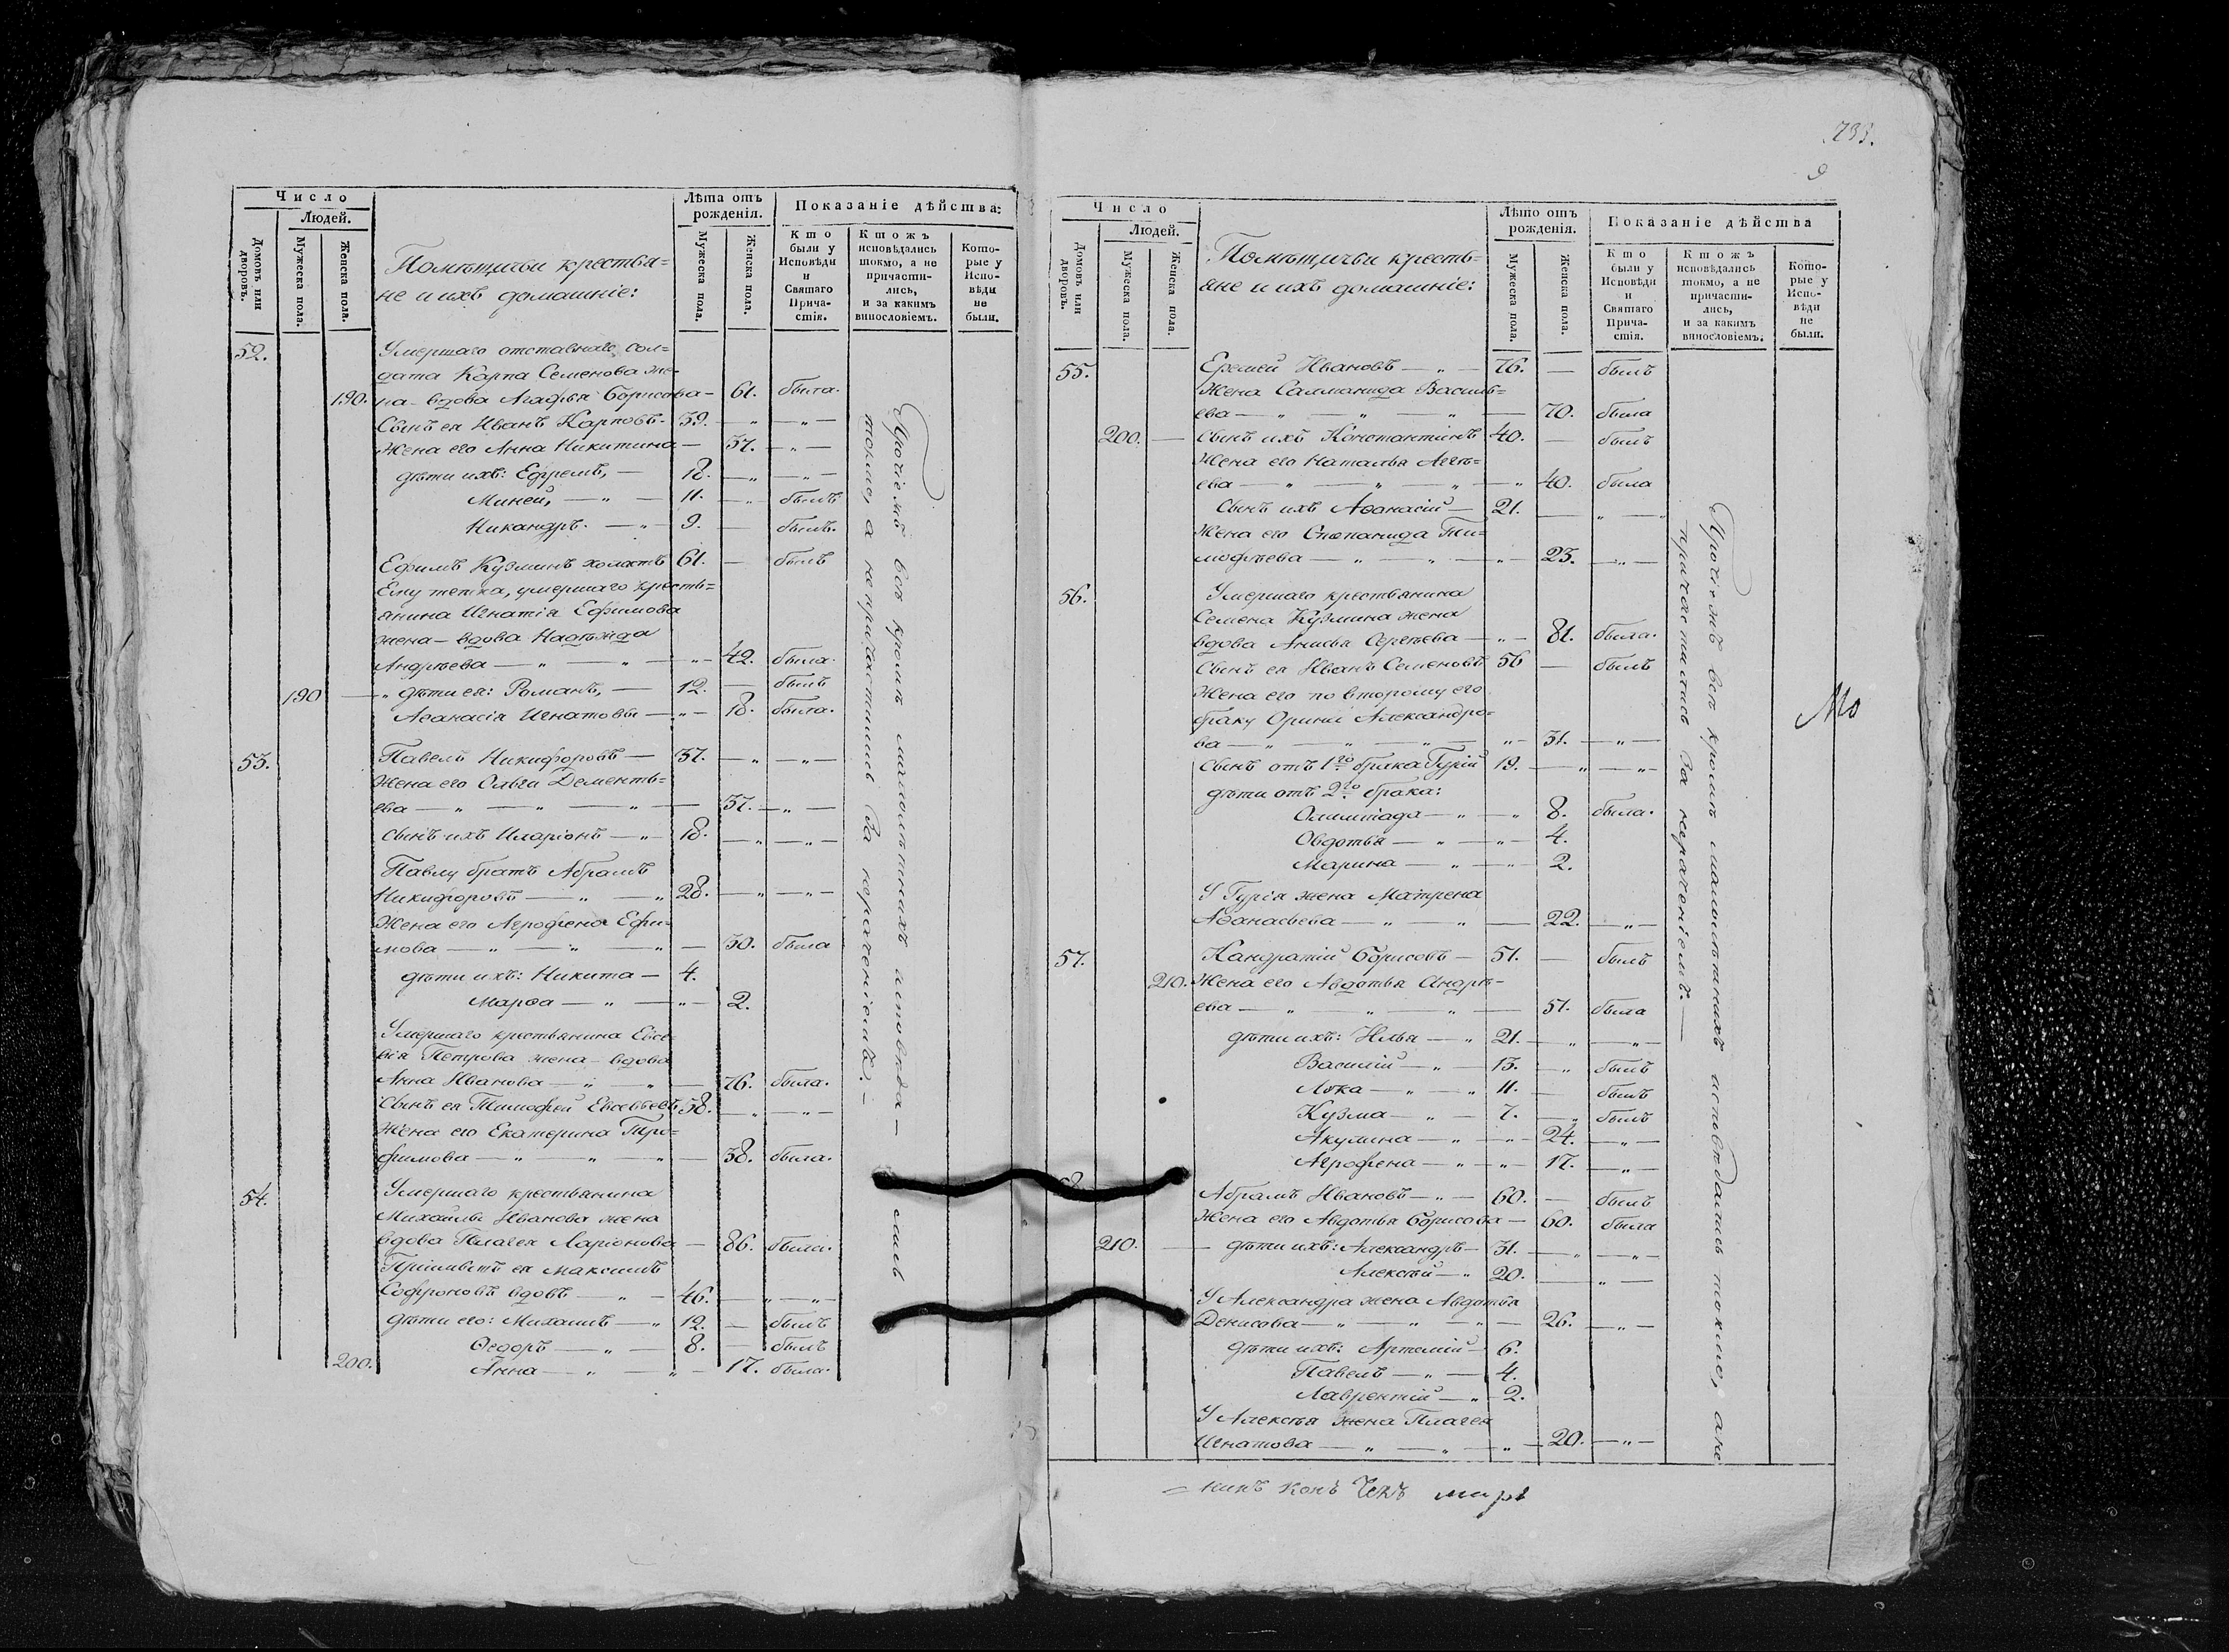 Число
Людей.
Домовъ или дворовъ.
Мужеска пола.
Женска пола.
Помѣщичьи крестья=
не и ихъ домашніе:
Лѣта отъ рожденія.
Мужеска пола.
Женска пола.
Показаніе дѣйства:
Кто были у Исповѣди и Святаго Причастія.
Ктожъ исповѣдались токмо, а не причастились, и за какимъ винословіемъ.
Которые у Исповѣди не были.
52. Умершаго отставнаго сол=
дата Карпа Семенова же=
190. на - вдова Агафья Борисова - 61. была.
Сынъ ея Иванъ Карповъ. 39. — „ — „ —
Жена его Анна Никитина — 37. — „ —
дѣти ихъ: Ефремъ, — 18. — „ — „
Миней, — „ — 11. — „ былъ
Никандръ. — „ — 9. — былъ.
Ефимъ Кузминъ холостъ 61. — былъ
Ему тетка, умершаго кресть=
янина Игнатія Ефимова
жена - вдова Надѣжда
Андрѣева — „ — „ — „ — 42. была.
190 — „ дѣти ея: Романъ, — 12. — былъ
Аѳанасія Игнатовы — „ — 18. была.
53. Павелъ Никифоровъ — 37. — „ — „ —
Жена его Ольга Дементь=
ева — „ — „ — „ — 37. — „ —
сынъ ихъ Иларіонъ — „ — 18. — „ — „ —
Павлу братъ Абрамъ
Никифоровъ — „ — „ 28. — „ — „ —
Жена его Агрофена Ефи=
мова — „ — „ — „ — 30. была
дѣти ихъ: Никита — 4.
Марѳа — „ — „ — 2.
Умершаго крестьянина Евсе=
вія Петрова жена - вдова
Анна Иванова — „ — „ — 76. была.
Сынъ ея Тимофей Евсевьевъ 58. — „ — „ —
Жена его Екатерина Тро=
фимова — „ — „ — „ — 38. была.
54. Умершаго крестьянина
Михайлы Иванова жена
вдова Пелагея Ларіонова — 86. была.
Пріимышъ ея Максимъ
Софроновъ вдовъ — „ — 46. — „ — „ —
дѣти его: Михаилъ — „ 12. — былъ
Ѳедоръ — „ — 8. — былъ
200. Анна — „ — „ — 17. была.
Протчіе жъ всѣ кромѣ малолѣтнихъ исповѣда-лись
токмо, а не причастились за нераченіемъ. —
9
Число
Людей.
Домовъ или дворовъ.
Мужеска пола.
Женска пола.
Помѣщичьи кресть=
яне и ихъ домашніе:
Лѣто отъ рожденія.
Мужеска пола.
Женска пола.
Показаніе дѣйства
Кто были у Исповѣди и Святаго Причастія.
Ктожъ исповѣдались токмо, а не причастились, и за какимъ винословіемъ.
Которые у Исповѣди не были.
55. Еремей Ивановъ — „ — 76. — былъ
Жена Саломанида Василь=
ева — „ — „ — „ — 70. была
200. — Сынъ ихъ Константінъ 40. — былъ
Жена его Наталья Алек=
ева — „ — „ — „ — „ 40. была
Сынъ ихъ Аѳанасій — 21. — „ —
Жена его Степанида Ти=
мофѣева — „ — „ — „ — 23. — „ —
56. Умершаго крестьянина
Семена Кузмина жена
вдова Анисья Сергѣева — „ — 81. была.
Сынъ ея Иванъ Семеновъ 56 — былъ
Жена его по второму его
браку Ориніи Александро=
ва — „ — „ — „ — „ — 31. — „ —
Сынъ отъ 1го брака Гурій 19. — „ — „ —
дѣти отъ 2го брака:
Олимпіада — „ — „ 8. была.
Овдотья — „ — „ — 4.
Марина — „ — „ — 2.
У Гурія жена Матрена
Аѳанасьева — „ — „ — 22. — „ —
57. Кандратій Борисовъ — 51. — былъ
210. Жена его Авдотья Андрѣ=
ева — „ — „ — „ — 51. была
дѣти ихъ: Илья — „ 21. — „ — „ —
Василій — „ — 13. — „ былъ
Лука — „ — „ 11. — былъ
Кузма — „ — 7. — „ былъ
Акулина — „ — „ — 24. — „ —
Агрофена — „ — „ — 17. — „ —
Абрамъ Ивановъ — „ — 60. — былъ
Жена его Авдотья Борисова — 60. была
210. — дѣти ихъ: Александръ — 31. — „ — „ —
Алексѣй — „ 20. — „ —
У Александра жена Авдотья
Денисова — „ — „ — „ — 26. — „ —
дѣти ихъ: Артемій — 6.
Павелъ — „ — 4.
Лаврентій — „ 2.
У Алексѣя жена Пелагея
Игнатова — „ — „ — „ — 20. — „ —
Протчіе жъ всѣ кромѣ малолѣтнихъ исповѣдались токмо, а не
причастились за нераченіемъ. —